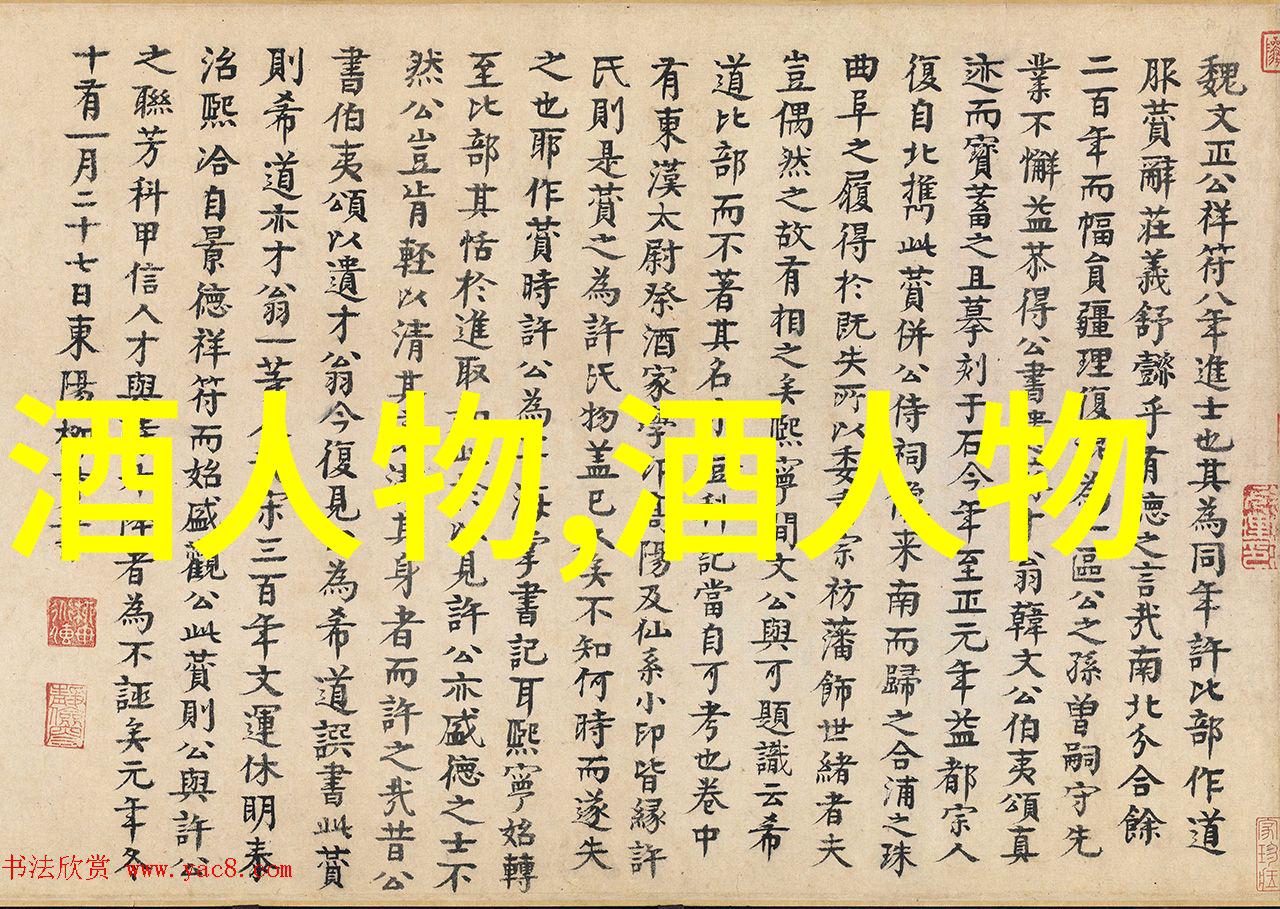 魏文正公祥符八年進士也其為同年許比部作道
服賛辭莊義舒懿乎有德之言哉南北分合餘
二百年而幅員疆理復為一區公之孫曾嗣守先
業不懈益恭得公書翁韓文公伯夷頌真
迹而寶蓄之且摹刻于石今年至正元年益都宗人
復自北携此賛併公侍祠像来南而歸之合浦之珠
曲阜之履得於既失所以委重宗祊藩飾世緒者夫
豈偶然之故有相之矣熙寧間文公與可題識云希
道比部而不著其名登科記當自可考也卷中
有東漢太尉祭酒家學陽及仙系小印皆縁許
氏則是賛之為許氏物盖已久矣不知何時而遂失
之也耶作賛時許公為海掌書記耳熙寧始轉
至比部其恬於進取如此於以見許公亦盛德之士不
然公豈肯輕以清其身者而許之哉昔公
書伯夷頌以遺才翁今復見為希道譔書此賛
則希道亦才翁一等人宋三百年文運休明泰
治熙洽自景德祥符而始盛觀公此賛則公與許公
之聯芳科甲信人才與降者為不誣矣元年冬
十有一月二十七日東陽柳
酒人物,酒人物
書法欣赏 www.yac8.com